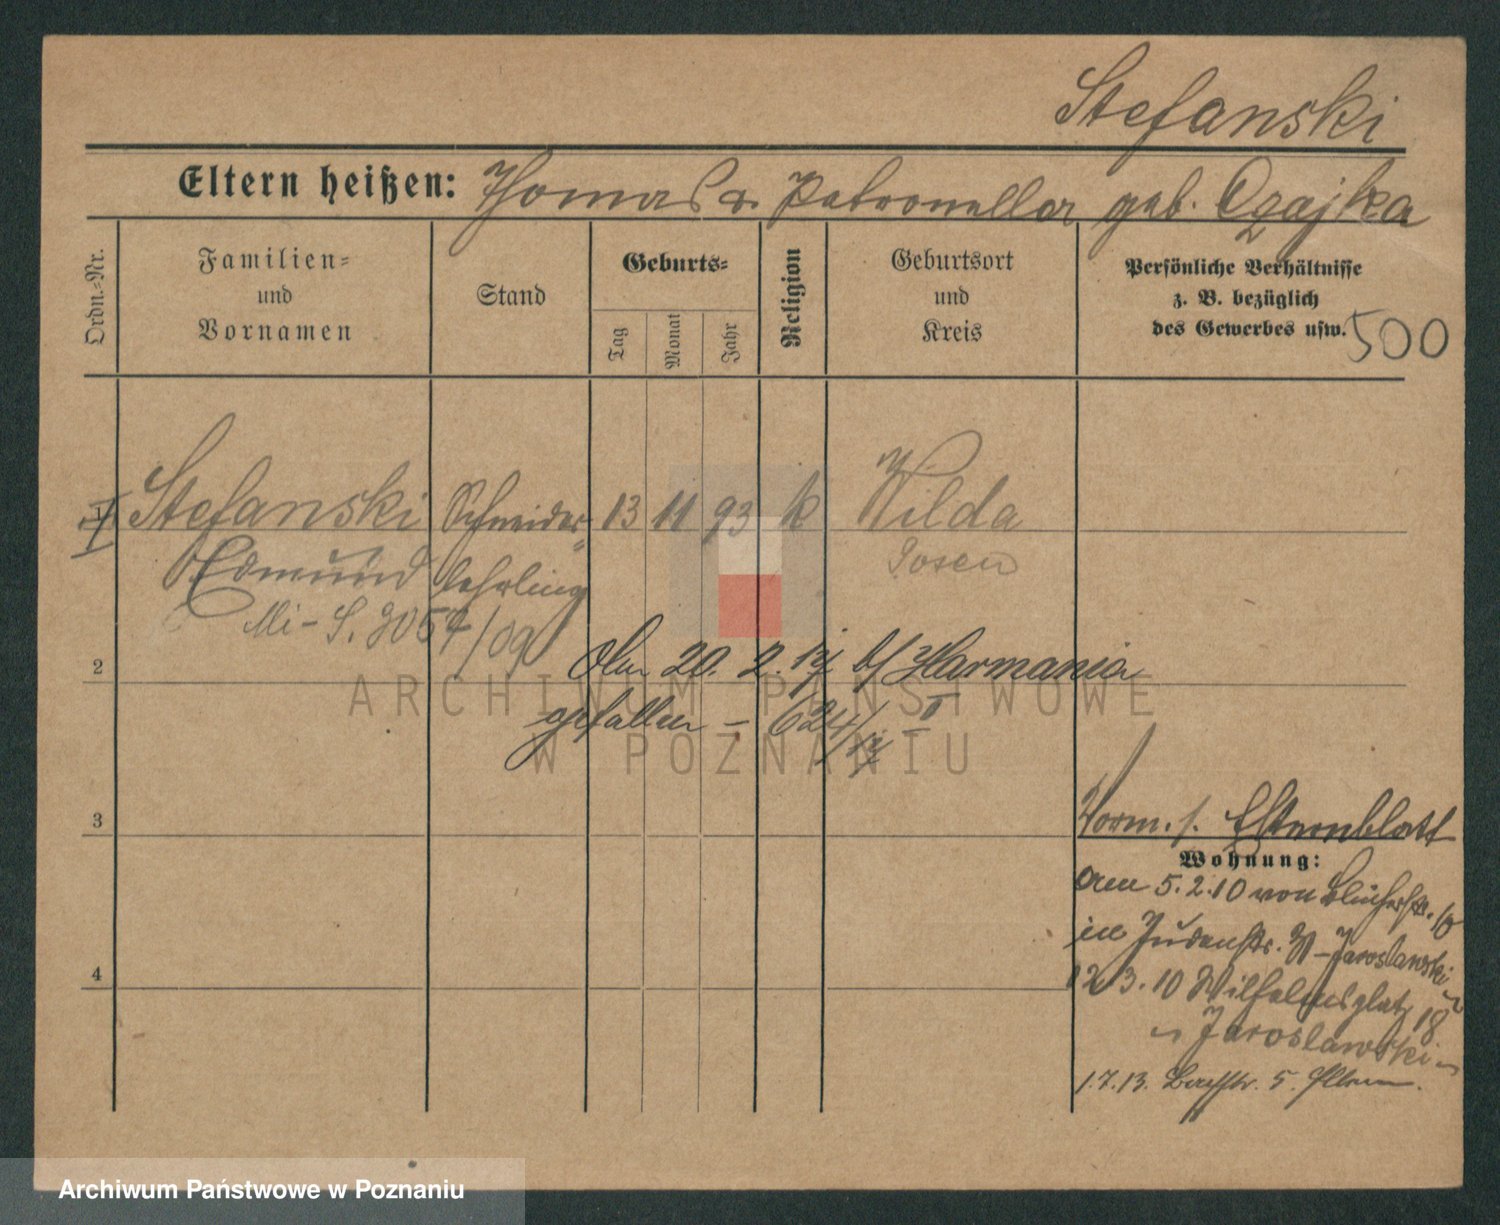 Stefanski
Eltern heißen: Thomas u. Petronella geb. Czajka
Ordn.-Nr.
Familien-
und
Vornamen
Stand
Geburts-
Tag
Monat
Jahr
Religion
Geburtsort
und
Kreis
Persönliche Verhältnisse
z. B. bezüglich
des Gewerbes usw.
500
1 Stefanski Schneider- 13 11 93 k Wilda
Edmund lehrling Posen
Mi-S. 3054/09
2
Am 20. 2. 17 b/
gefallen - 624/17 I
ARCHIWUM PAŃSTWOWE
W POZNANIU
3
Vorm. s. Elternblatt
Wohnung:
am 5.2.10 von Blücherstr. 10
in Judenstr. Jaroslawski
12.3.10 Wilhelmsplatz 18
Jaroslawski
1.7.13. 5. Eltern.
4
Archiwum Państwowe w Poznaniu